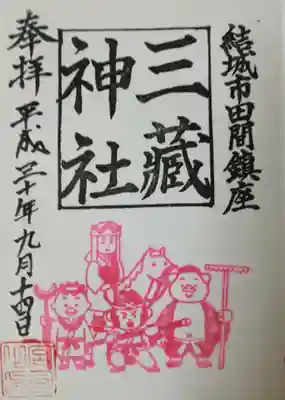 結城市田間鎮座
三蔵
神社
奉拝
平成三十年九月十四日